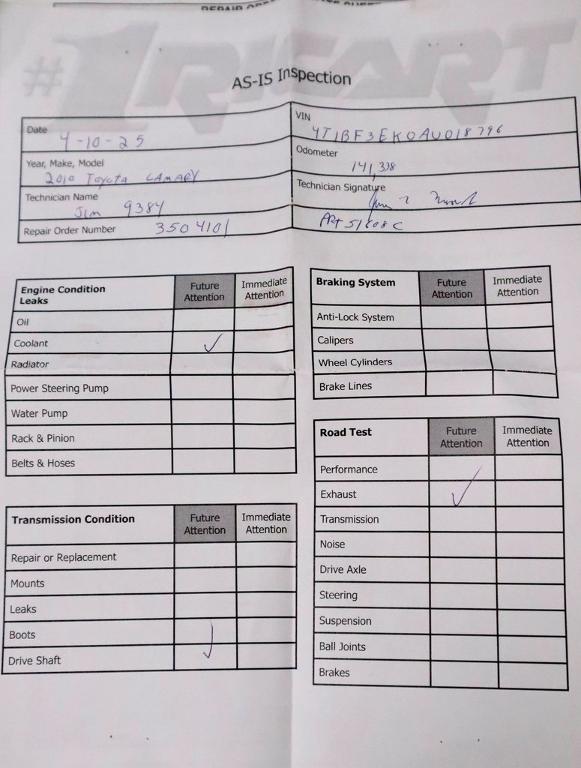 #1 RICART
AS-IS Inspection
Date 4-10-25
VIN 4T1BF3EK0AU018796
Year, Make, Model 2010 Toyota CAMARY
Odometer 141,338
Technician Name Jim 9384
Technician Signature
Repair Order Number 3504101
Engine Condition Leaks Future Attention Immediate Attention
Oil
Coolant ✓
Radiator
Power Steering Pump
Water Pump
Rack & Pinion
Belts & Hoses
Transmission Condition Future Attention Immediate Attention
Repair or Replacement
Mounts
Leaks
Boots
Drive Shaft ✓
Braking System Future Attention Immediate Attention
Anti-Lock System
Calipers
Wheel Cylinders
Brake Lines
Road Test Future Attention Immediate Attention
Performance
Exhaust ✓
Transmission
Noise
Drive Axle
Steering
Suspension
Ball Joints
Brakes